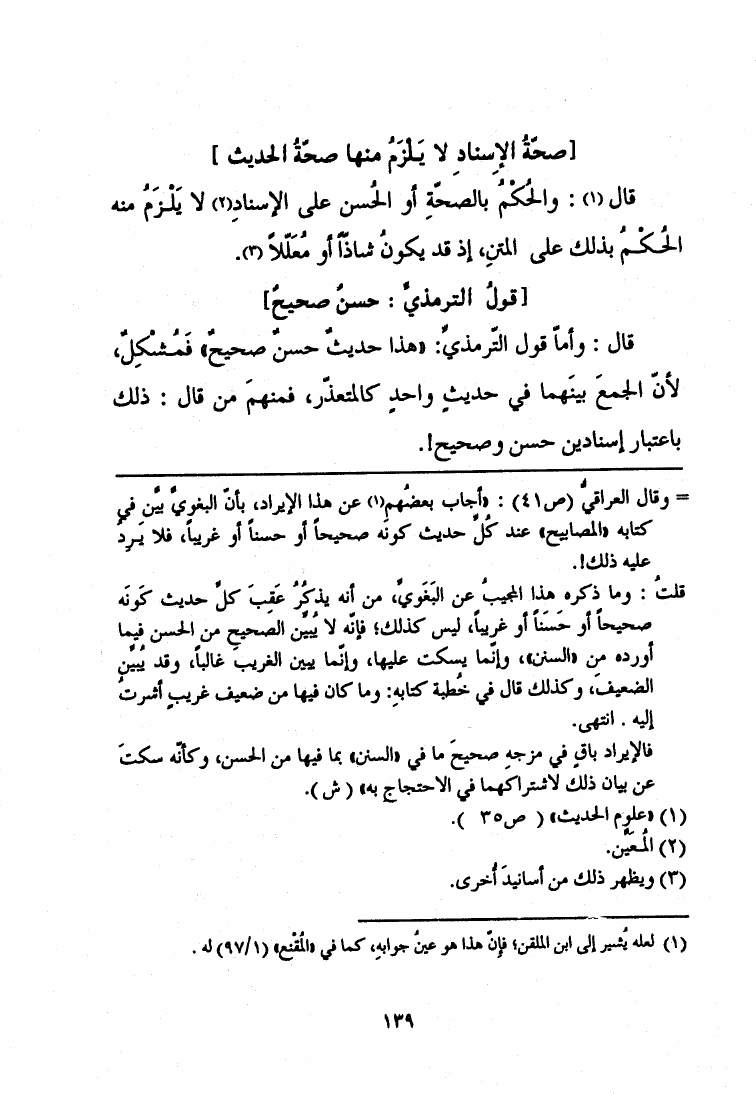 [صحّةُ الإِسنادِ لا يَلْزَمُ منها صحّةُ الحديث]
قال (١) : والحُكْمُ بالصحّةِ أو الحُسن على الإسنادِ(٢) لا يَلْزَمُ منه
الحُكْمُ بذلك على المتنِ، إذ قد يكونُ شاذّاً أو مُعَلّلاً (٣).
[قولُ الترمذيِّ : حسنٌ صحيحٌ]
قال : وأماّ قول التّرمذيِّ: «هذا حديثٌ حسنٌ صحيحٌ» فَمُشْكِلٌ،
لأنّ الجمعَ بينَهما في حديثٍ واحدٍ كالمتعذّر، فمنهمَ من قال : ذلك
باعتبار إسنادين حسن وصحيح!.
= وقال العراقيُّ (ص٤١) : «أجاب بعضُهم(١) عن هذا الإيراد، بأنّ البغويَّ بيَّن في
كتابه «المصابيح» عند كُلِّ حديث كونَه صحيحاً أو حسناً أو غريباً، فلا يَرِدُ
عليه ذلك!.
قلتُ : وما ذكره هذا المجيبُ عن البَغَويِّ، من أنه يذكُرُ عَقِبَ كلِّ حديث كَونَه
صحيحاً أو حَسَناً أو غريباً، ليس كذلك؛ فإنّه لا يُبيِّن الصحيحَ من الحسن فيما
أورده من «السنن»، وإنّما يسكت عليها، وإنّما يبين الغريبَ غالباً، وقد يُبيِّنُ
الضعيفَ، وكذلك قال في خُطبة كتابهِ: وما كان فيها من ضعيف غريبٍ أشرتُ
إليه . انتهى.
فالإيراد باقٍ في مزجهِ صحيحَ ما في «السنن» بما فيها من الحسن، وكأنّه سكتَ
عن بيان ذلك لاشتراكهما في الاحتجاج به» (ش).
(١) «علوم الحديث» ( ص٣٥ ).
(٢) المُعَيَّن.
(٣) ويظهر ذلك من أسانيدَ أُخرى.
(١) لعله يُشير إلى ابن الملقن؛ فإنّ هذا هو عينُ جوابهِ، كما في «المُقْنِع» (٩٧/١) له .
١٣٩